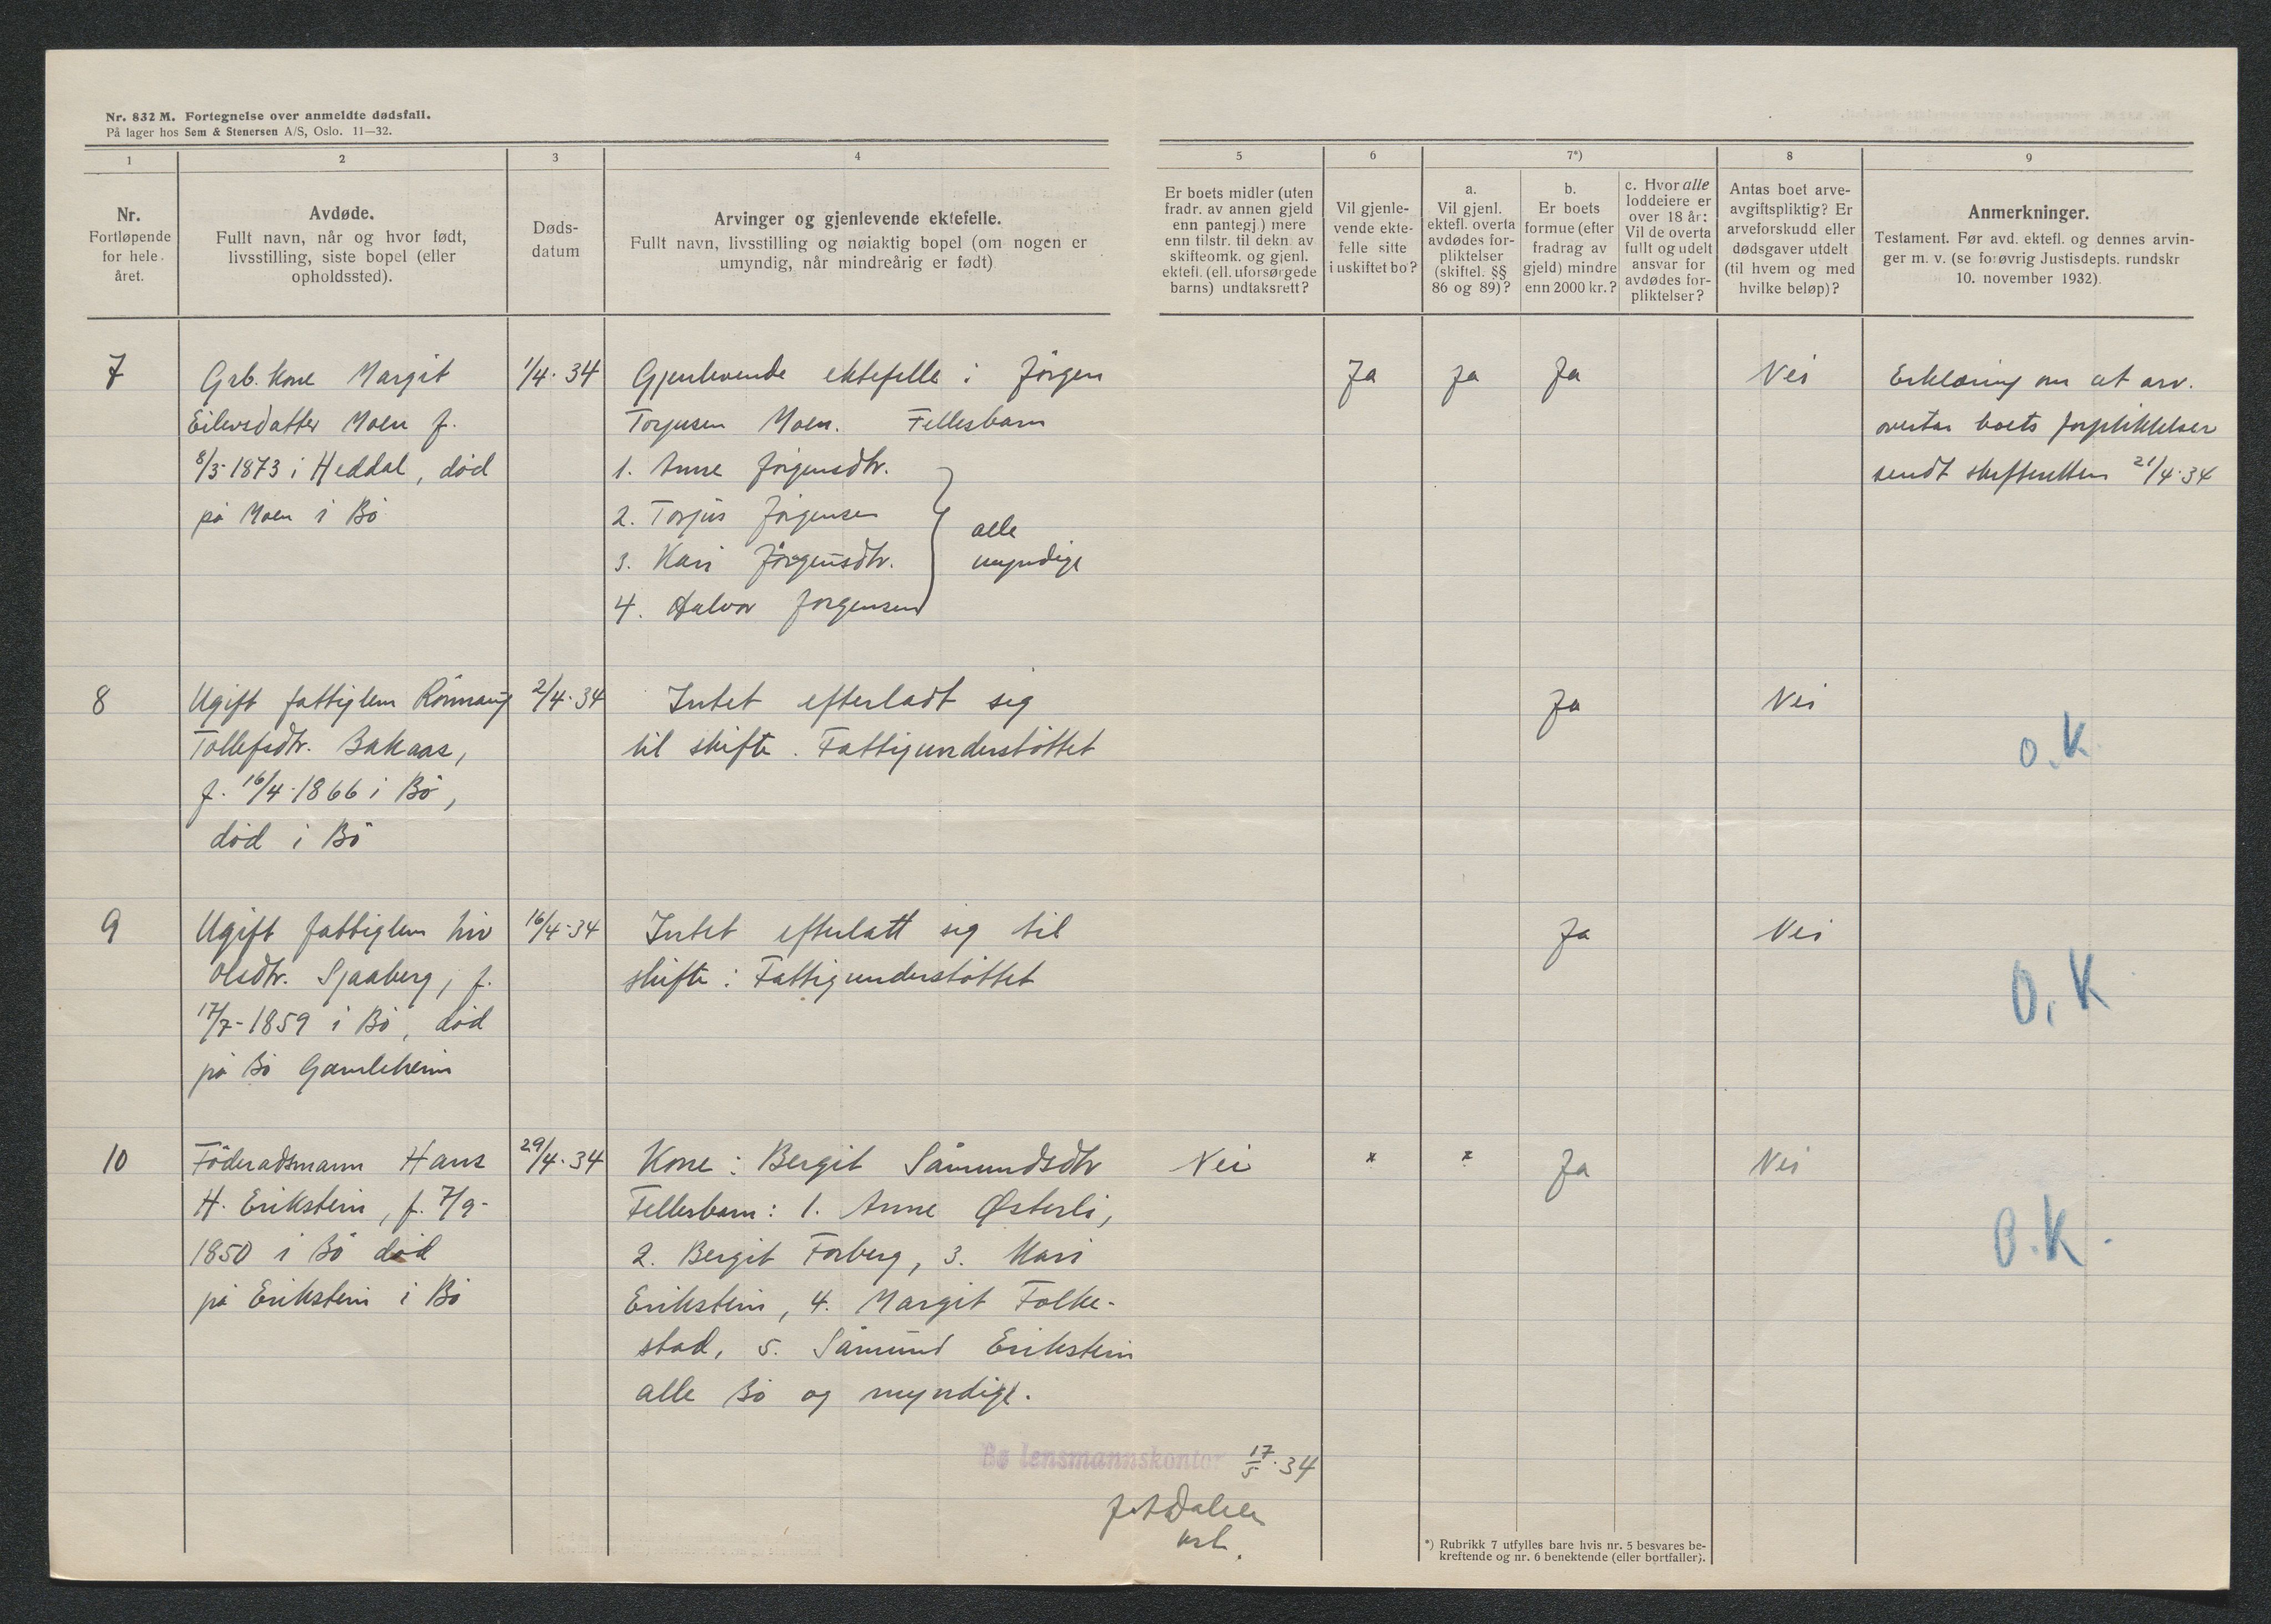 Nr. 832 M. Fortegnelse over anmeldte dødsfall.
På lager hos Sem & Stenersen A/S, Oslo. 11—32.
1
2
3
4
5
6
7*)
8
9
Nr.
Fortløpende
for hele
året.
Avdøde.
Fullt navn, når og hvor født,
livsstilling, siste bopel (eller
opholdssted).
Døds-
datum
Arvinger og gjenlevende ektefelle.
Fullt navn, livsstilling og nøiaktig bopel (om nogen er
umyndig, når mindreårig er født)
Er boets midler (uten
fradr. av annen gjeld
enn pantegj.) mere
enn tilstr. til dekn. av
skifteomk. og gjenl.
ektefl. (ell. uforsørgede
barns) undtaksrett?
Vil gjenle-
vende ekte-
felle sitte
i uskiftet bo?
a.
Vil gjenl.
ektefl. overta
avdødes for-
pliktelser
(skiftel. §§
86 og 89)?
b.
Er boets
formue (efter
fradrag av
gjeld) mindre
enn 2000 kr.?
c. Hvor alle
loddeiere er
over 18 år:
Vil de overta
fullt og udelt
ansvar for
avdødes for-
pliktelser?
Antas boet arve-
avgiftspliktig? Er
arveforskudd eller
dødsgaver utdelt
(til hvem og med
hvilke beløp)?
Anmerkninger.
Testament. Før avd. ektefl. og dennes arvin-
ger m. v. (se forøvrig Justisdepts. rundskr
10. november 1932).
7
Grb. kone Margit
Eilevsdatter Moen f.
8/3-1873 i Heddal, død
på Moen i Bö
1/4-34
Gjenlevende ektefelle : Jörgen
Torjusen Moen. Fellesbarn
1. Anne Jörgensdtr.
2. Torjus Jörgensen
3. Kari Jörgensdtr.
4. Halvor Jörgensen
alle
myndige
Ja
Ja
Ja
Nei
Erklæring om at arv.
overtar boets forpliktelser
sendt skifteretten 21/4-34
8
Ugift fattiglem Rönnaug
Tollefsdtr. Bakaas,
f. 16/4-1866 i Bö,
död i Bö
2/4-34
Intet efterladt sig
til skifte. Fattigunderstöttet
Ja
Nei
O.K
9
Ugift fattiglem Liv
Olsdtr. Sjaaberg, f.
17/7-1859 i Bö, död
på Bö Gamleheim
16/4-34
Intet efterlatt sig til
skifte : Fattigunderstöttet
Ja
Nei
O.K
10
Föderadsmann Hans
H. Erikstein, f. 7/9-
1850 i Bö död
på Erikstein i Bö
29/4-34
Kone : Bergit Sämundsdtr
Fellesbarn : 1. Anne Østerli,
2. Bergit Forberg, 3. Kari
Erikstein, 4. Margit Folke-
stad, 5. Sämund Erikstein
alle Bö og myndige.
Nei
"
"
Ja
Nei
O.K.
Bø lensmannskontor 17/5-34
*) Rubrikk 7 utfylles bare hvis nr. 5 besvares be-
kreftende og nr. 6 benektende (eller bortfaller).